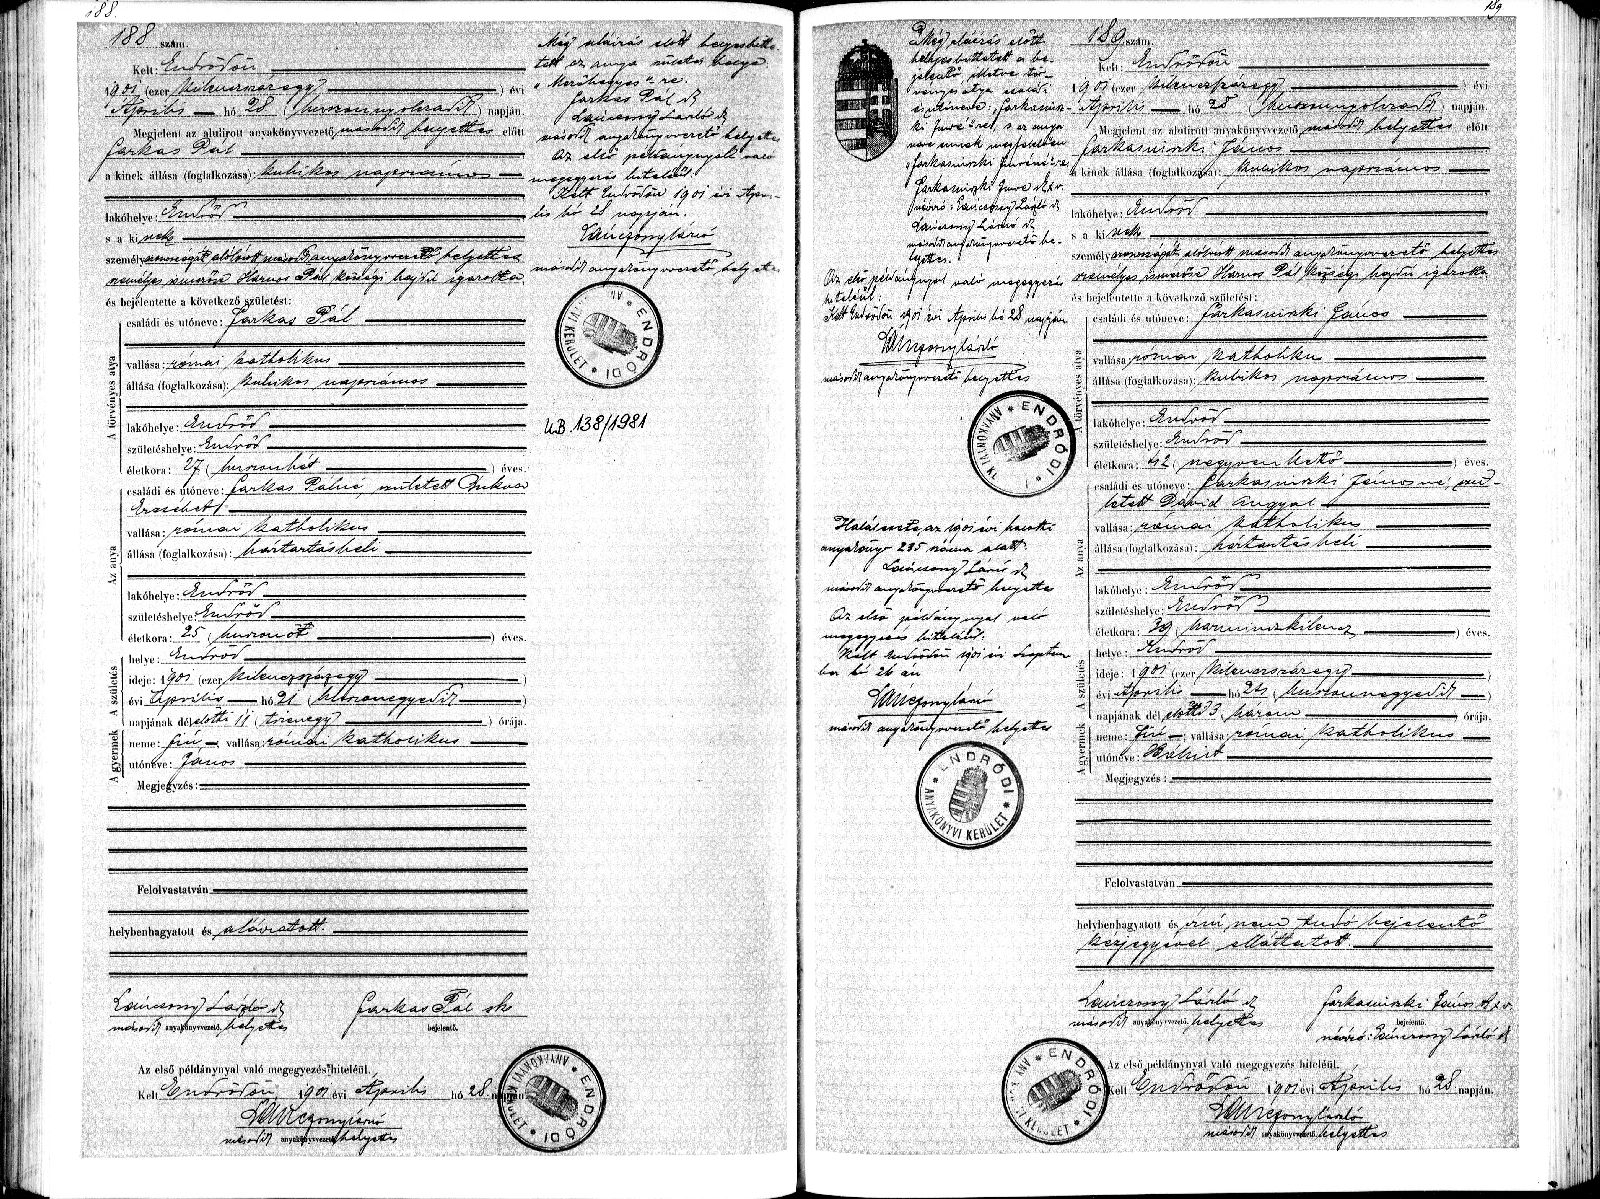 188.
188 szám.
Kelt: Endrődön
1901 (ezer kilenczszázegy) évi
Április hó 28 (huszonnyolczadik) napján.
Megjelent az alulirott anyakönyvvezető második helyettes előtt
Farkas Pál
a kinek állása (foglalkozása): kubikos napszámos
lakóhelye: Endrőd
s a kinek
személyazonosságát alólirott második anyakönyvvezető helyettes
személyes ismerőse Harnos Pál községi hajdu igazolta,
és bejelentette a következő születést:
A törvényes atya
családi és utóneve: Farkas Pál
vallása: római katholikus
állása (foglalkozása): kubikos napszámos
lakóhelye: Endrőd
születéshelye: Endrőd
életkora: 27 (huszonhét) éves.
Az anya
családi és utóneve: Farkas Pálné, született
Erzsébet
vallása: római katholikus
állása (foglalkozása): háztartásbeli
lakóhelye: Endrőd
születéshelye: Endrőd
életkora: 25 (huszonöt) éves.
A születés
helye: Endrőd
ideje: 1901 (ezer kilenczszázegy)
évi Április hó 21 (huszonegyedik)
napjának délelőtti 11 (tizenegy) órája.
A gyermek
neme: fiú, vallása: római katholikus
utóneve: János
Megjegyzés:
Felolvastatván
helybenhagyatott és aláiratott.
Lánczony László sk
második anyakönyvvezető helyettes
Farkas Pál sk
bejelentő.
Az első példánynyal való megegyezés hiteléül.
Kelt Endrődön 1901 évi Április hó 28 napján.
Lánczony László
második anyakönyvvezető helyettes
ENDRŐDI ANYAKÖNYVI KERÜLET
Még aláirás előtt helyesbitte-
tett az anya születés helye
re.
Farkas Pál sk
Lánczony László sk
második anyakönyvvezető helyettes
Az első példánynyal való
megegyezés hiteléül.
Kelt Endrődön 1901 évi Ápri-
lis hó 28 napján.
Lánczony László
második anyakönyvvezető helyettes
ENDRŐDI ANYAKÖNYVI KERÜLET
U.B. 138/1981
189
189 szám.
Kelt: Endrődön
1901 (ezer kilenczszázegy) évi
Április hó 28 (huszonnyolczadik) napján.
Megjelent az alulirott anyakönyvvezető második helyettes előtt
Farkasinszki János
a kinek állása (foglalkozása): kubikos napszámos
lakóhelye: Endrőd
s a kinek
személyazonosságát alólirott második anyakönyvvezető helyettes
személyes ismerőse Harnos Pál községi hajdu igazolta,
és bejelentette a következő születést:
A törvényes atya
családi és utóneve: Farkasinszki János
vallása: római katholikus
állása (foglalkozása): kubikos napszámos
lakóhelye: Endrőd
születéshelye: Endrőd
életkora: 42 (negyvenkettő) éves.
Az anya
családi és utóneve: Farkasinszki Jánosné, szü-
letett Dávid Angyal
vallása: római katholikus
állása (foglalkozása): háztartásbeli
lakóhelye: Endrőd
születéshelye: Endrőd
életkora: 39 (harminczkilencz) éves.
A születés
helye: Endrőd
ideje: 1901 (ezer kilenczszázegy)
évi Április hó 24 (huszonnegyedik)
napjának délelőtti 3 három órája.
A gyermek
neme: fiú; vallása: római katholikus
utóneve: Bálint
Megjegyzés:
Felolvastatván
helybenhagyatott és irni nem tudó bejelentő
kézjegyével elláttatott.
Lánczony László sk
második anyakönyvvezető helyettes
Farkasinszki János k.x.v.
bejelentő.
névíró: Lánczony László sk
Az első példánynyal való megegyezés hiteléül.
Kelt Endrődön 1901 évi Április hó 28 napján.
Lánczony László
második anyakönyvvezető helyettes
ENDRŐDI ANYAKÖNYVI KERÜLET
Még aláirás előtt
helyesbittetett a be-
jelentő, illetve tör-
vényes atya családi
és utóneve: Farkasinsz-
ki Imré"re, s az anya
neve ennek megfelelően
"Farkasinszki Imréné"re
Farkasinszki Imre k.x.v.
névíró: Lánczony László sk
Lánczony László sk
második anyakönyvvezető he-
lyettes.
Az első példánynyal való megegyezés
hiteléül.
Kelt Endrődön 1901 évi Április hó 28 napján
Lánczony László
második anyakönyvvezető helyettes
ENDRŐDI ANYAKÖNYVI KERÜLET
Halálesete az 1901 évi halotti
anyakönyv 235 száma alatt.
Lánczony László sk
második anyakönyvvezető helyettes
Az első példánynyal való
megegyezés hiteléül.
Kelt Endrődön 1901 évi Szeptem-
ber hó 26 án
Lánczony László
második anyakönyvvezető helyettes
ENDRŐDI ANYAKÖNYVI KERÜLET